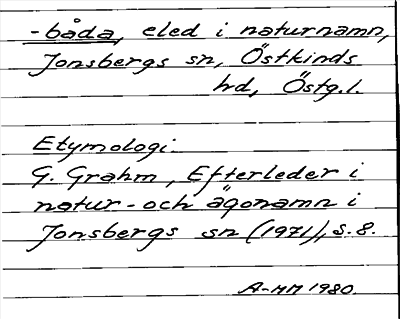 -båda, eled i naturnamn,
Jonsbergs sn, Östkinds
hd, Östg.l.
Etymologi
G. Grahm, Efterleder i
natur- och ägonamn i
Jonsbergs sn (1971), s. 8.
A-MM 1980.